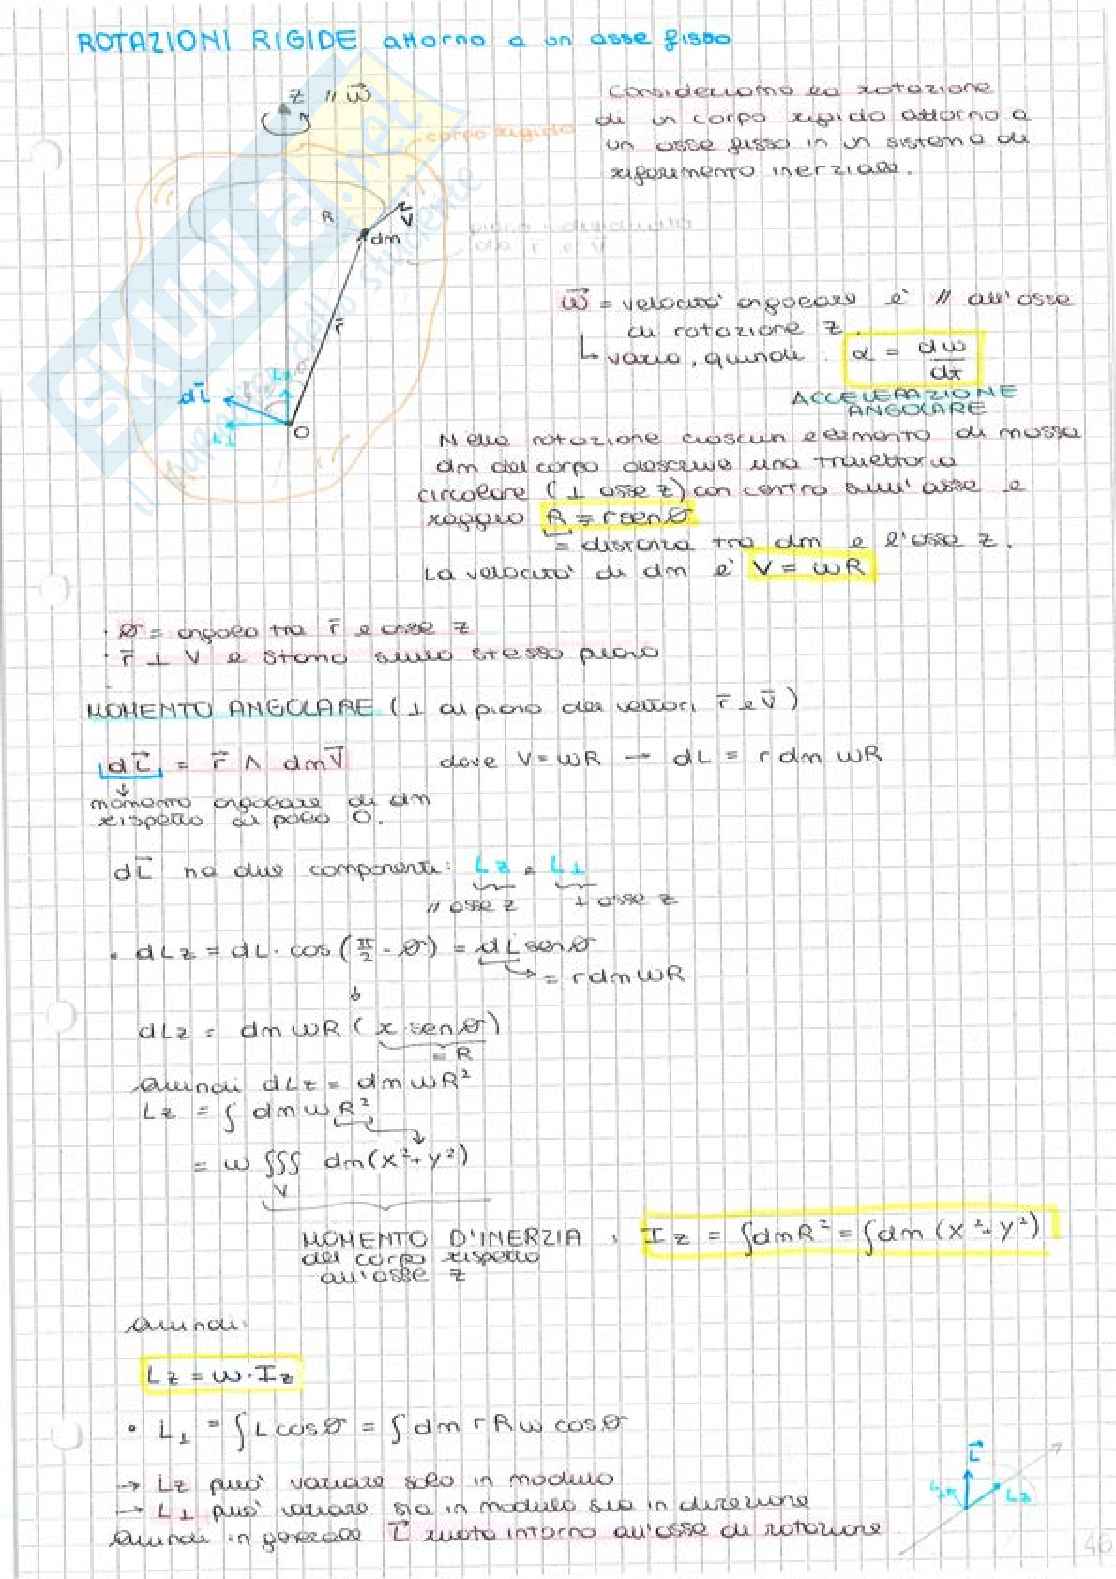 ROTAZIONI RIGIDE attorno a un asse fisso
Z // ω⃗
corpo rigido
R
V⃗
dm
r⃗
Lz
dL⃗
L⊥
O
Consideriamo la rotazione
di un corpo rigido attorno a
un asse fisso in un sistema di
riferimento inerziale.
ω⃗ = velocità angolare è // all'asse
di rotazione z.
↳ varia, quindi α = dω/dt
ACCELERAZIONE
ANGOLARE
Nella rotazione ciascun elemento di massa
dm del corpo descrive una traiettoria
circolare (⊥ asse z) con centro sull'asse e
raggio R = r senθ
= distanza tra dm e l'asse z.
La velocità di dm è V = ωR
· θ = angolo tra r⃗ e asse z
· r⃗ ⊥ V e stanno sullo stesso piano
MOMENTO ANGOLARE (⊥ al piano dei vettori r⃗ e v⃗)
dL⃗ = r⃗ ∧ dm V⃗ dove V = ωR → dL = r dm ωR
momento angolare di dm
rispetto al polo O.
dL⃗ ha due componenti: Lz e L⊥
// asse z ⊥ asse z
• dLz = dL · cos(π/2 - θ) = dL senθ
= r dm ωR
dLz = dm ωR (r senθ)
= R
Quindi dLz = dm ωR²
Lz = ∫ dm ω R²
= ω ∭ dm (x² + y²)
V
MOMENTO D'INERZIA, Iz = ∫dmR² = ∫dm (x² + y²)
del corpo rispetto
all'asse z
Quindi:
Lz = ω · Iz
• L⊥ = ∫ L cosθ = ∫ dm r R ω cosθ
→ Lz può variare solo in modulo
→ L⊥ può variare sia in modulo sia in direzione
Quindi in generale L⃗ ruota intorno all'asse di rotazione
L⃗
Lz
46
SKUOLA.net